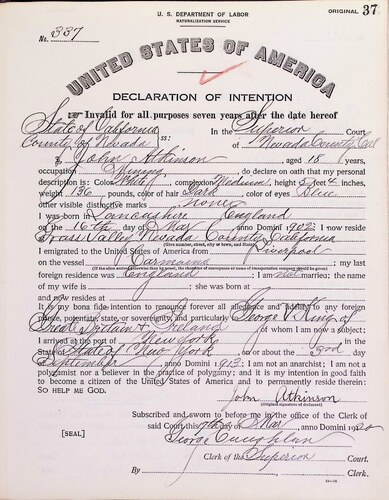 U. S. DEPARTMENT OF LABOR
NATURALIZATION SERVICE
ORIGINAL 37
No. 337
UNITED STATES OF AMERICA
DECLARATION OF INTENTION
Invalid for all purposes seven years after the date hereof
State of California
County of Nevada ss: In the Superior Court of Nevada County, Cal
I, John Atkinson, aged 18 years,
occupation Mining, do declare on oath that my personal
description is: Color White, complexion Medium, height 5 feet 4 inches,
weight 136 pounds, color of hair Dark, color of eyes Blue
other visible distinctive marks none
I was born in Lancashire England
on the 16th day of May, anno Domini 1902; I now reside
at Grass Valley Nevada County California
I emigrated to the United States of America from Liverpool
on the vessel; my last
foreign residence was England; I am not married; the name
of my wife is; she was born at
and now resides at
It is my bona fide intention to renounce forever all allegiance and fidelity to any foreign
prince, potentate, state, or sovereignty, and particularly to George V King of
Great Britain & Ireland, of whom I am now a subject;
I arrived at the port of New York, in the
State of New York, on or about the day
of September, anno Domini 1913; I am not an anarchist; I am not a
polygamist nor a believer in the practice of polygamy; and it is my intention in good faith
to become a citizen of the United States of America and to permanently reside therein:
SO HELP ME GOD.
John Atkinson
(Original signature of declarant)
Subscribed and sworn to before me in the office of the Clerk of
[SEAL] said Court this day of Mar, anno Domini 1920
George Coughlan
Clerk of the Superior Court.
By, Clerk.